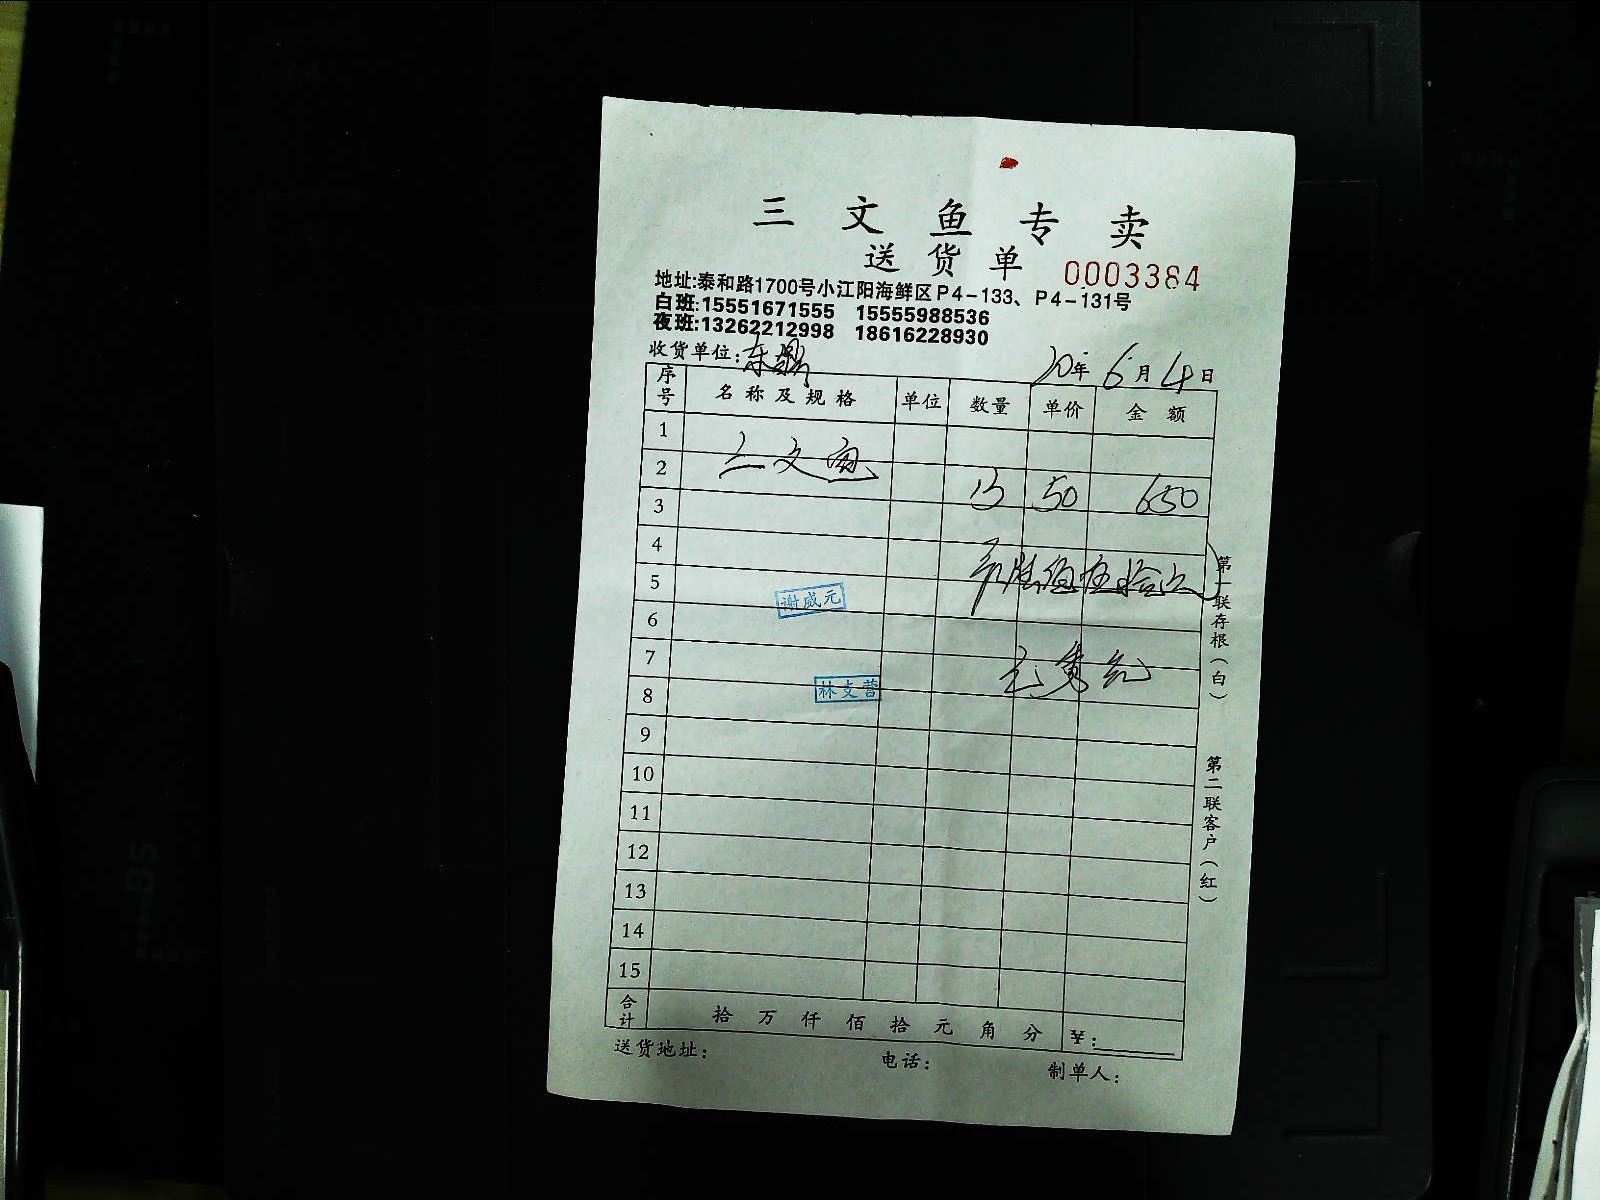 三文鱼专卖
送货单 0003384
地址:泰和路1700号小江阳海鲜区P4-133、P4-131号
白班:15551671555 15555988536
夜班:13262212998 18616228930
收货单位: 20年6月4日
序号 名称及规格 单位 数量 单价 金额
1
2 三文鱼 13 50 650
3
4
5 谢成元
6
7
8 林文营
9
10
11
12
13
14
15
合计 拾万仟佰拾元角分 ¥:
送货地址: 电话: 制单人:
第一联存根(白)
第二联客户(红)
B5